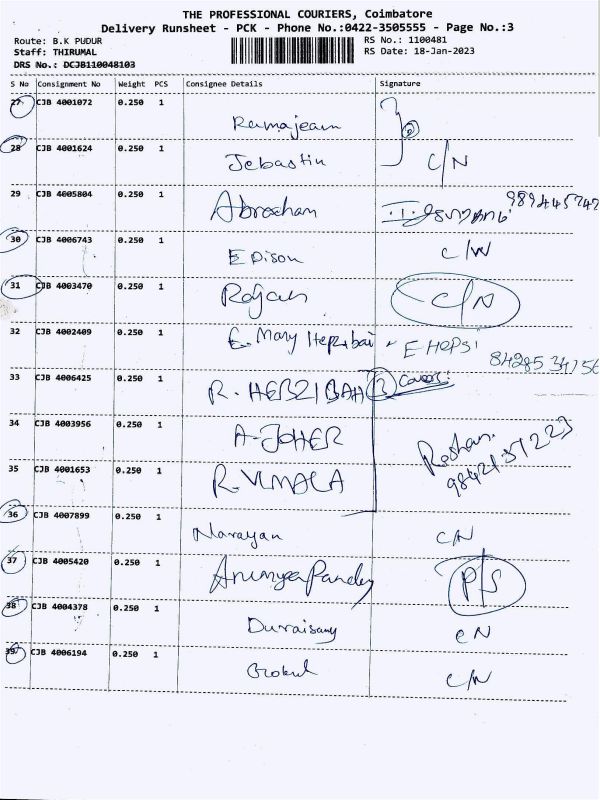 THE PROFESSIONAL COURIERS, Coimbatore
Delivery Runsheet - PCK - Phone No.:0422-3505555 - Page No.:3
Route: B.K PUDUR RS No.: 1100481
Staff: THIRUMAL RS Date: 18-Jan-2023
DRS No.: DCJB110048103
S No Consignment No Weight PCS Consignee Details Signature
27 CJB 4001072 0.250 1 Ramajeam
28 CJB 4001624 0.250 1 Jebastin C/N
29 CJB 4005804 0.250 1 Abrocham
30 CJB 4006743 0.250 1 Edison C/N
31 CJB 4003470 0.250 1 Rajan C/N
32 CJB 4002409 0.250 1 E. Mary Hepzibai E HEPSI
33 CJB 4006425 0.250 1 R. HEBZIBAH 3 Cover
34 CJB 4003956 0.250 1 A-JOHER Roshan
35 CJB 4001653 0.250 1 R. VIMALA
36 CJB 4007899 0.250 1 Narayan C/N
37 CJB 4005420 0.250 1 P/S
38 CJB 4004378 0.250 1 Duraisamy CN
39 CJB 4006194 0.250 1 Gokul C/N